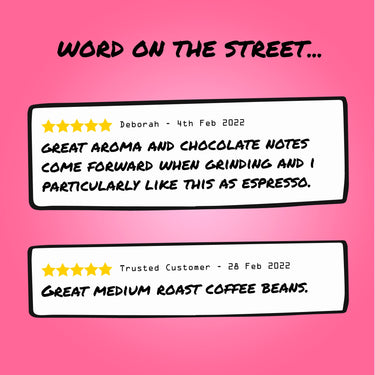 WORD ON THE STREET...
Deborah - 4th Feb 2022
GREAT AROMA AND CHOCOLATE NOTES
COME FORWARD WHEN GRINDING AND I
PARTICULARLY LIKE THIS AS ESPRESSO.
Trusted Customer - 28 Feb 2022
GREAT MEDIUM ROAST COFFEE BEANS.